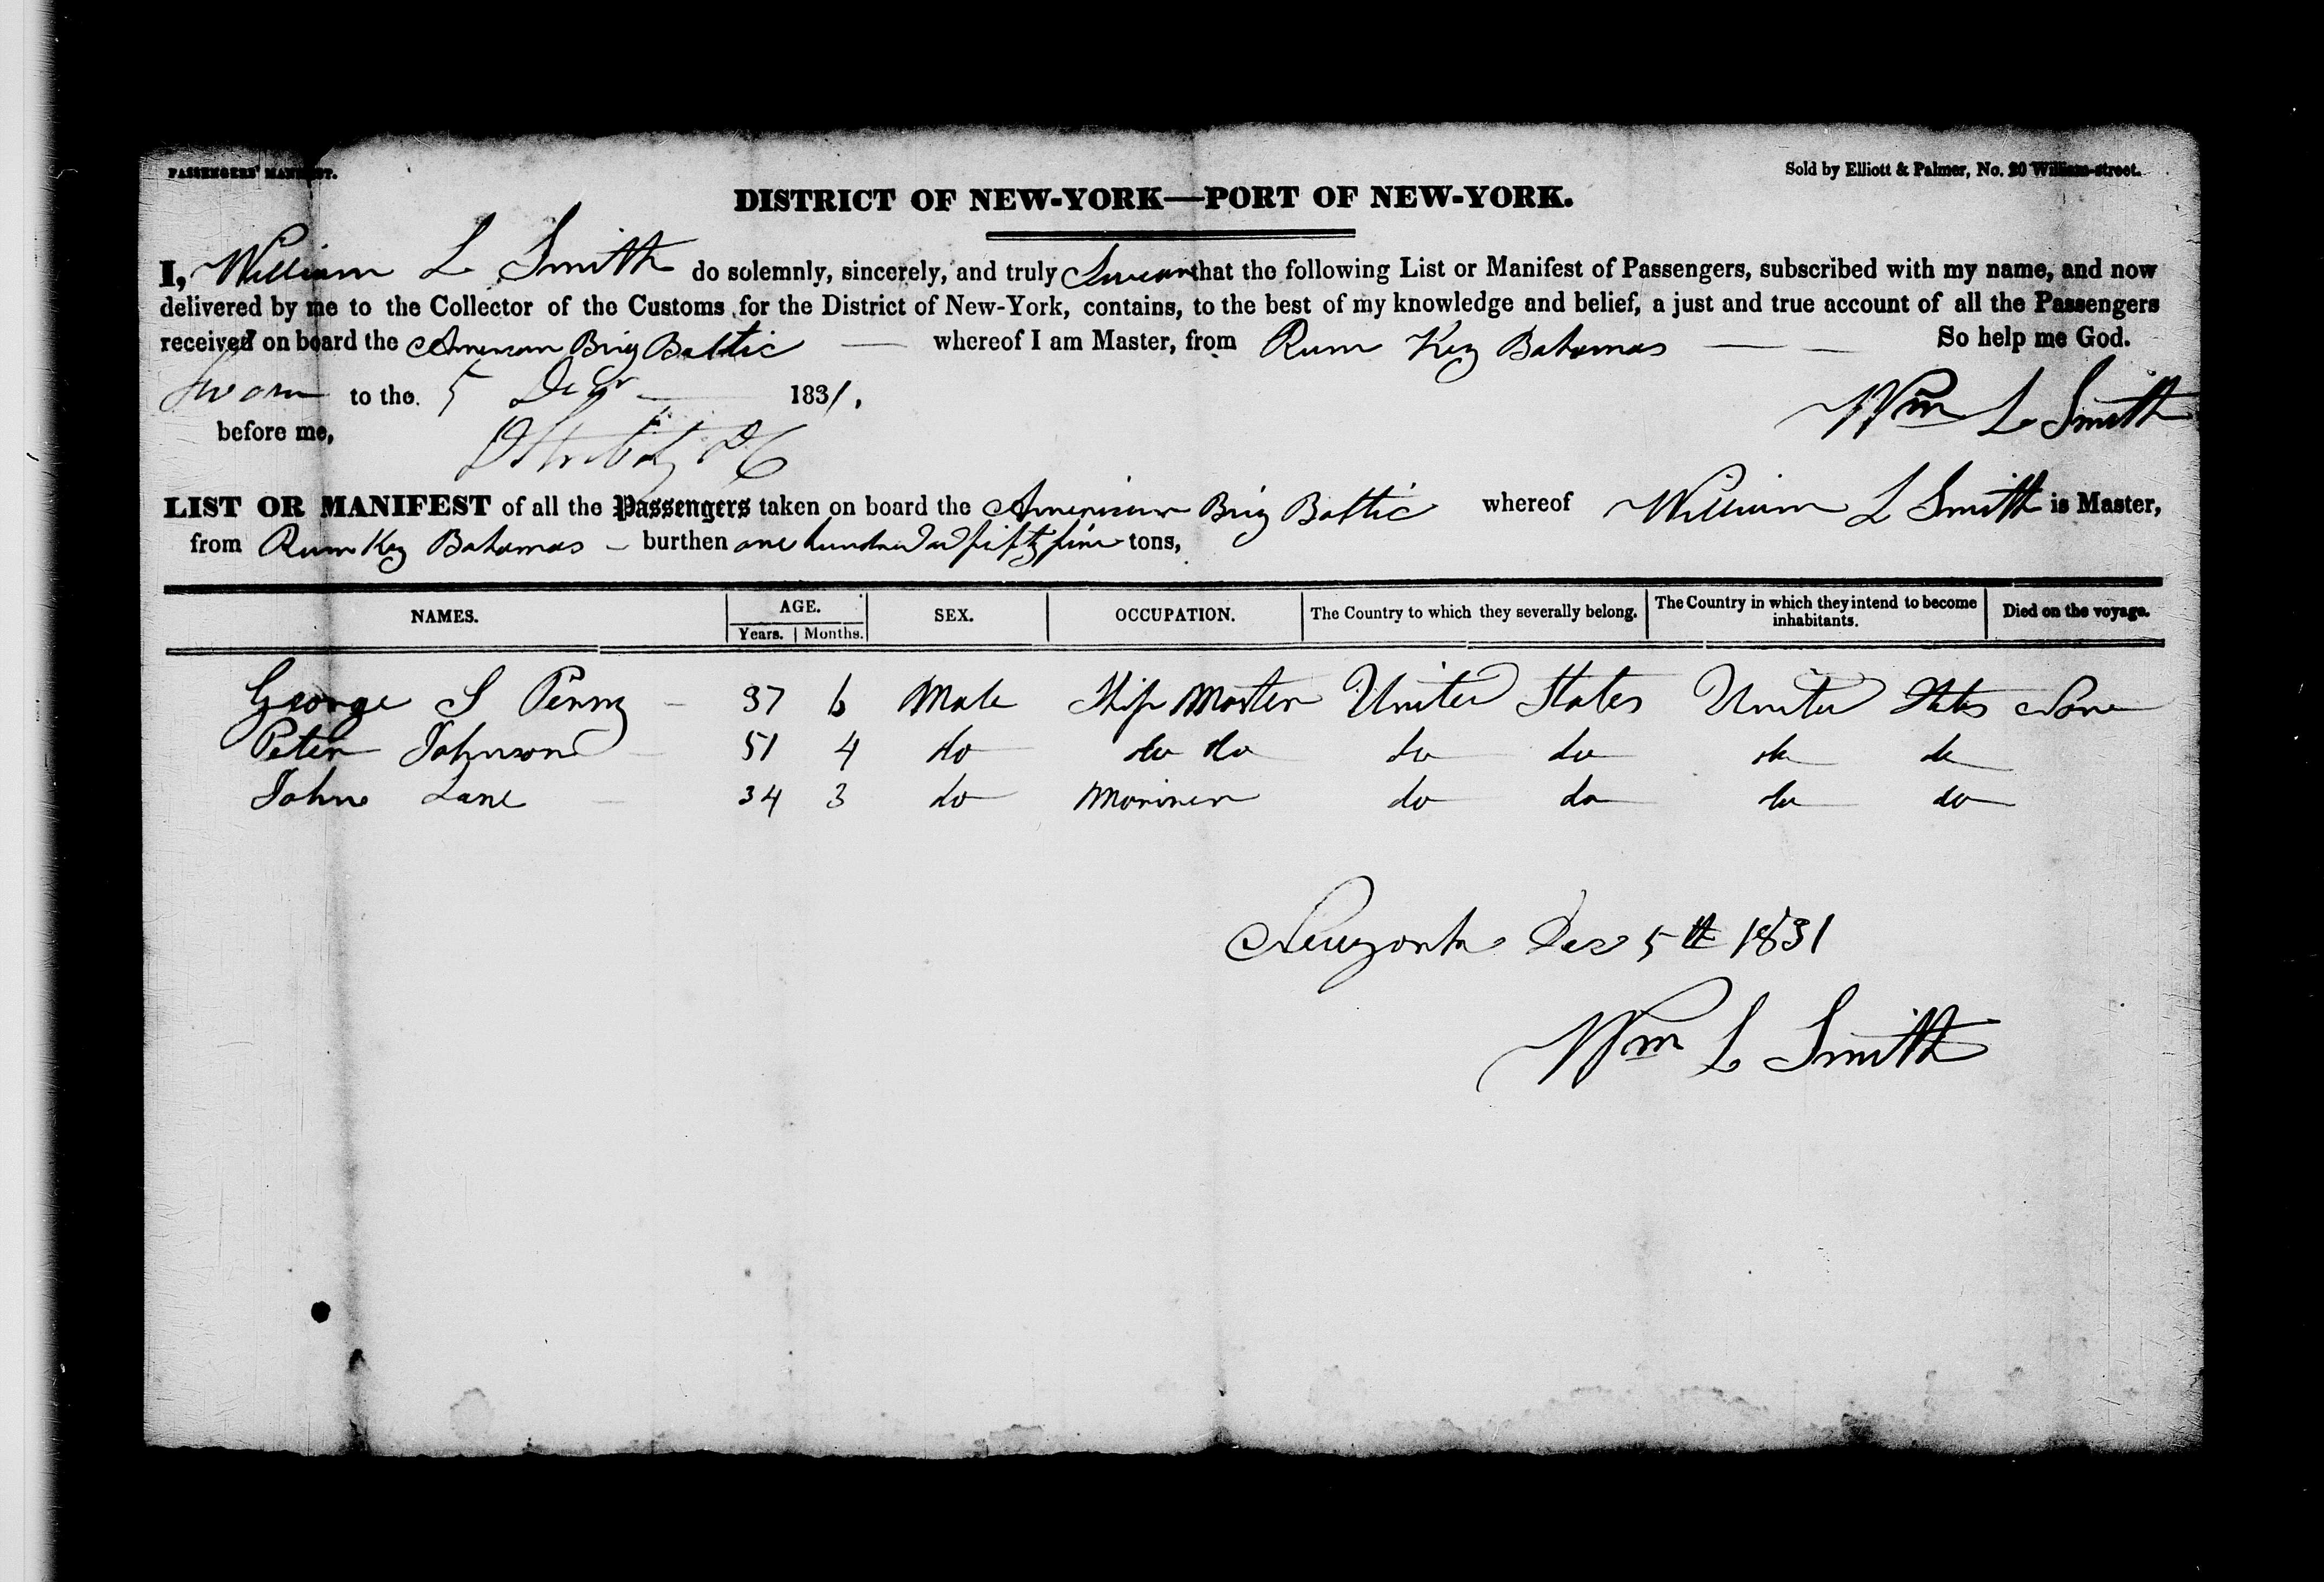 PASSENGERS' MANIFEST.
Sold by Elliott & Palmer, No. 20 William-street.
DISTRICT OF NEW-YORK—PORT OF NEW-YORK.
I, William L Smith do solemnly, sincerely, and truly Swear that the following List or Manifest of Passengers, subscribed with my name, and now
delivered by me to the Collector of the Customs for the District of New-York, contains, to the best of my knowledge and belief, a just and true account of all the Passengers
received on board the American Brig Baltic — whereof I am Master, from Rum Key Bahamas — — So help me God.
Sworn to the 5 Decr 1831.
Wm L Smith
before me,
LIST OR MANIFEST of all the Passengers taken on board the American Brig Baltic whereof William L Smith is Master,
from Rum Key Bahamas – burthen one hundred & fifty five tons,
NAMES. AGE. SEX. OCCUPATION. The Country to which they severally belong. The Country in which they intend to become inhabitants. Died on the voyage.
Years. Months.
George S Penny – 37 6 Male Ship Master United States United States None
Peter Johnson 51 4 do do do do do do do
John Lane 34 3 do Mariner do do do do
Newyork Dec 5th 1831
Wm L Smith